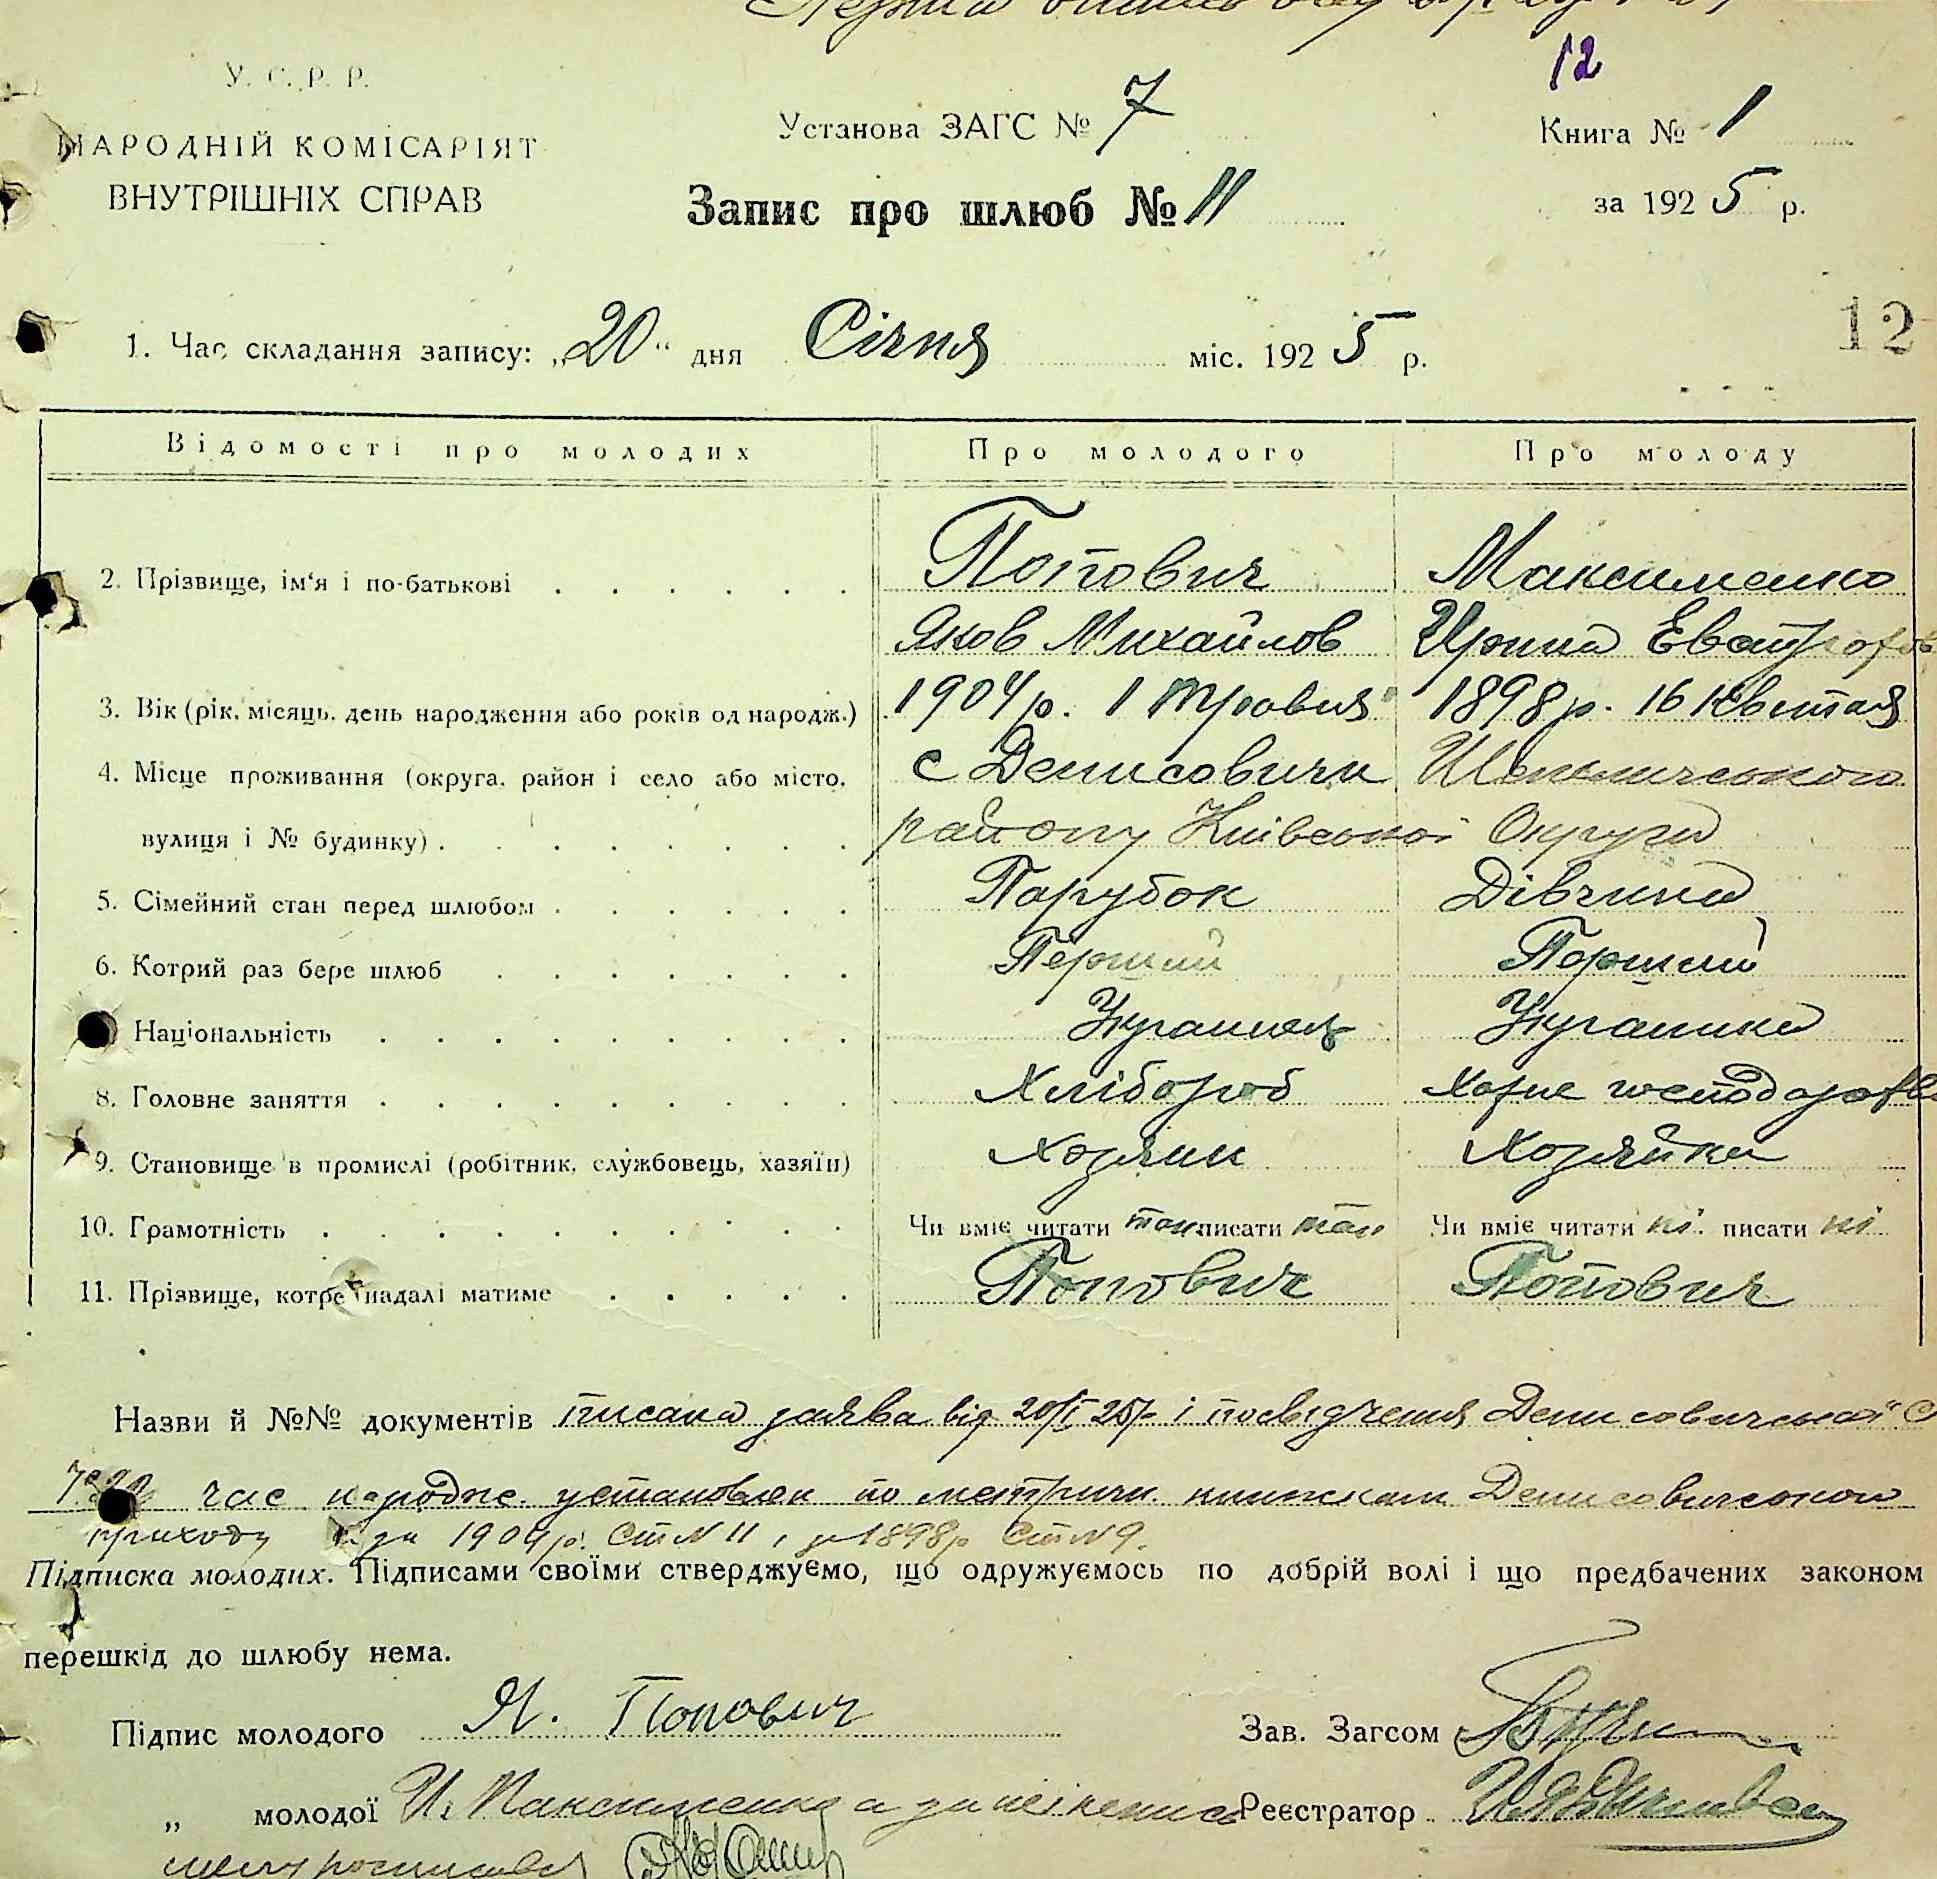 12
У. С. Р. Р.
НАРОДНІЙ КОМІСАРІЯТ
ВНУТРІШНІХ СПРАВ
Установа ЗАГС № 7
Книга № 1
Запис про шлюб № 11
за 1925 р.
12
1. Час складання запису: „20“ дня Січня міс. 1925 р.
Відомості про молодих Про молодого Про молоду
2. Прізвище, ім‘я і по-батькові Попович Максименко
Яков Михайлов Ирина
3. Вік (рік, місяць, день народження або років од народж.) 1904 р. 1 травня 1898 р. 16 Квітня
4. Місце проживання (округа, район і село або місто, с Денисовичи Шепелического
вулиця і № будинку) району Київської Округи
5. Сімейний стан перед шлюбом Парубок Дівчина
6. Котрий раз бере шлюб Перший Перший
Національність Украинец Украинка
8. Головне заняття Хлібороб
9. Становище в промислі (робітник, службовець, хазяїн) Хозяин Хозяйка
10. Грамотність Чи вміє читати так писати так Чи вміє читати ні писати ні
11. Прізвище, котре надалі матиме Попович Попович
Назви й №№ документів писана заява від 20/I 25р і посвідчення Денисовичської
час народж. установлен по метричн. книжкам Денисовичского
приходу за 1904 р. Ст N 11 і за 1898 р Ст N 9.
Підписка молодих. Підписами своїми стверджуємо, що одружуємось по добрій волі і що предбачених законом
перешкід до шлюбу нема.
Підпис молодого Я. Попович Зав. Загсом
„ молодої И. Максименко а за неї Реєстратор